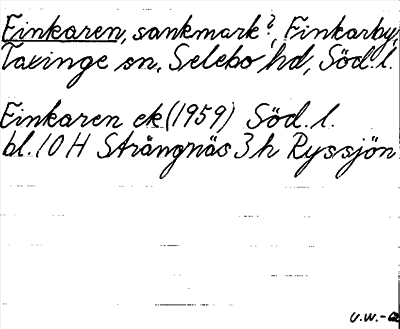 Finkaren, sankmark?, Finkarby,
Taxinge sn, Selebo hd, Söd. l.
Finkaren ek (1959) Söd. l.
bl. 10 H Strängnäs 3 h Ryssjön